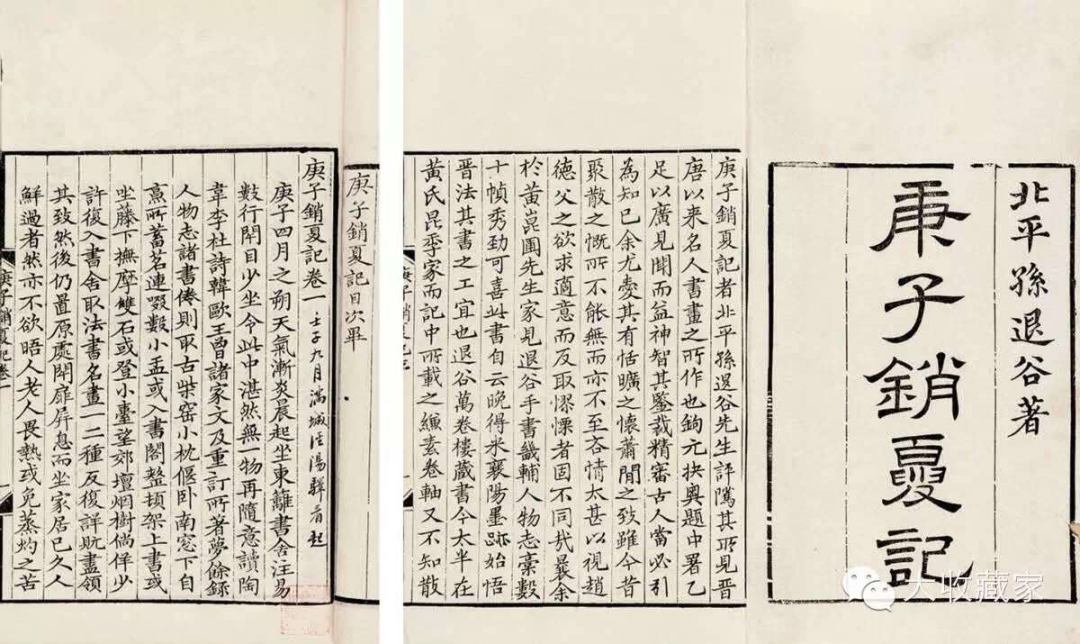 北平孫退谷著
庚子銷夏記
庚子銷夏記者北平孫退谷先生評隲其所見晉
唐以來名人書畫之所作也鉤元抉奥題中署乙
足以廣見聞而益神智其鑒裁精審古人當必引
為知己余尤愛其有恬曠之懷蕭閒之致雖今昔
聚散之慨所不能無而亦不至吝情太甚以視趙
德父之欲求適意而反取憀慄者固不同哉曩余
於黃崑圃先生家見退谷手書畿輔人物志槀數
十幀秀勁可喜此書自云晚得米襄陽墨跡始悟
晉法其書之工宜也退谷萬卷樓藏書今太半在
黃氏昆季家而記中所載之縑素卷軸又不知散
庚子銷夏記目次畢
庚子銷夏記卷一
壬子九月滿城
陽驛
起
庚子四月之朔天氣漸炎晨起坐東籬書舍注易
數行閉目少坐令此中湛然無一物再隨意讀陶
韋李杜詩韓歐王曾諸家文及重訂所著夢餘錄
人物志諸書倦則取古柴窑小枕偃卧南窓下自
烹所蓄茗連啜數小盂或入書閣整頓架上書或
坐藤下撫摩雙石或登小臺望郊壇烟樹徜徉少
許復入書舍取法書名畫一二種反復詳玩盡領
其致然後仍置原處閉扉屏息而坐家居已久人
鮮過者然亦不欲晤人老人畏熱或免蒸灼之苦
庚子銷夏記卷一
大收藏家